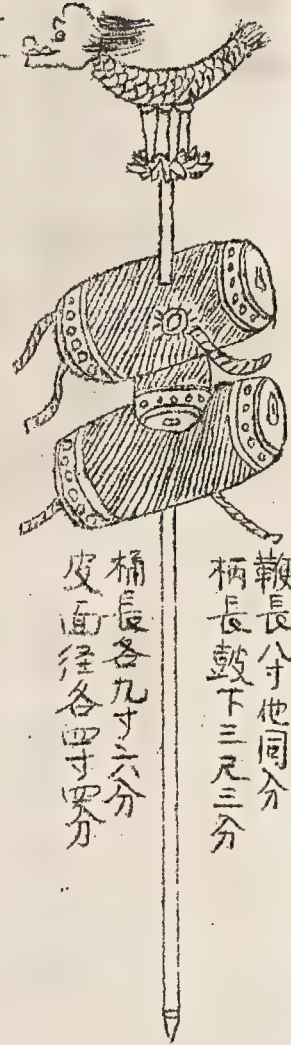 鞭長八寸他同分
柄長皷下三尺三分
桶長各九寸六分
皮面径各四寸四分